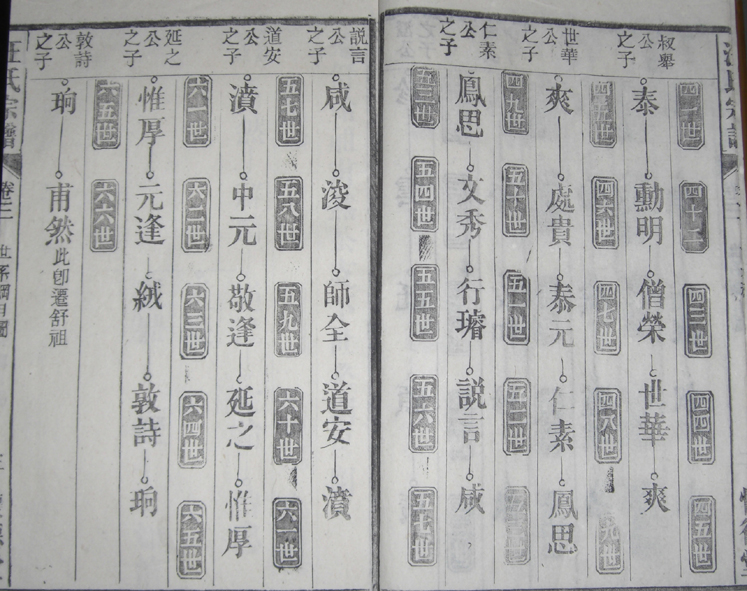 叔舉公之子
四十一世 四十二 四三世 四四世 四五世
泰 勳明 僧榮 世華 爽
世華公之子
四五世 四六世 四七世 四八世 四九世
爽 處貴 泰元 仁素 鳳思
仁素公之子
四九世 五十世 五一世 五二世 五三世
鳳思 文秀 行璿 説言 咸
五三世 五四世 五五世 五六世 五七世
説言公之子
咸 浚 師全 道安 濆
五七世 五八世 五九世 六十世 六一世
道安公之子
濆 中元 敬逢 延之 惟厚
六一世 六二世 六三世 六四世 六五世
延之公之子
惟厚 元逢 絨 敦詩 珦
六五世 六六世
敦詩公之子
珦 甫然 此卽遷舒祖
汪氏宗譜 卷二 世系綱目圖